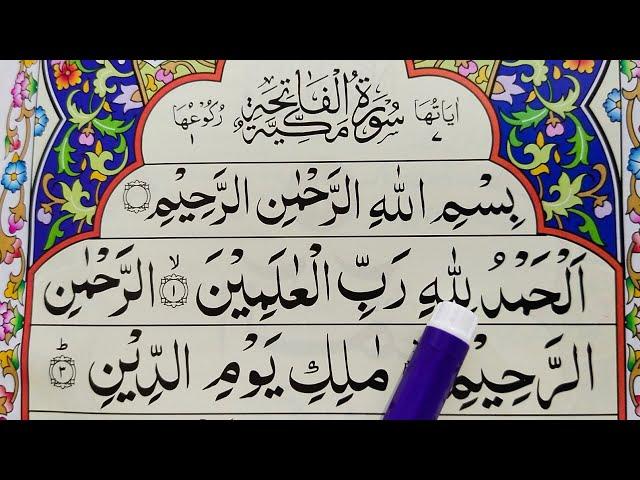 اٰیَاتُهَا ٧ سُوْرَةُ الْفَاتِحَةِ مَكِّيَّةٌ رُكُوْعُهَا ١
بِسْمِ اللهِ الرَّحْمٰنِ الرَّحِيْمِ
اَلْحَمْدُ لِلّٰهِ رَبِّ الْعٰلَمِيْنَ ۙ﴿١﴾ الرَّحْمٰنِ
الرَّحِيْمِ مٰلِكِ يَوْمِ الدِّيْنِ ؕ﴿٣﴾